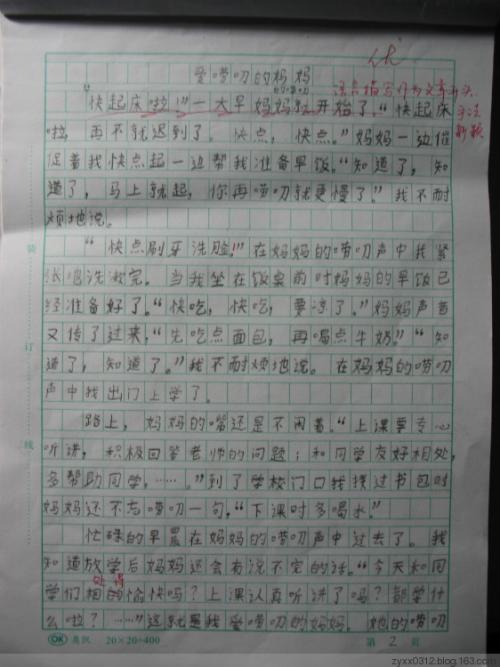 优
爱唠叨的妈妈
语言描写作为文章开头
手法
新颖
的唠叨
“快起床啦！”一大早妈妈就开始了。“快起床
啦，再不就迟到了。快点，快点。”妈妈一边催
促着我快点起一边帮我准备早饭。“知道了，知
道了，马上就起，你再唠叨就更慢了。”我不耐
烦地说。
“快点刷牙洗脸！”在妈妈的唠叨声中我紧
洗漱完。当我坐在饭桌前时妈妈的早饭已
经准备好了。“快吃，快吃，要凉了。”妈妈声音
又传了过来，“先吃点面包，再喝点牛奶。”“知
道了，知道了。”我不耐烦地说。在妈妈的唠叨
声中我出门上学了。
路上，妈妈的嘴还是不闲着。“上课要专心
听讲，积极回答老师的问题；和同学友好相处，
多帮助同学，……。”到了学校门口我接过书包时
妈妈还不忘唠叨一句，“下课时多喝水。”
忙碌的早晨在妈妈的唠叨声中过去了。我
知道放学后妈妈还会有说不完的话。“今天和同
处得
学们相的愉快吗？上课认真听讲了吗？都学什
么啦？……”这就是我爱唠叨的妈妈，她的唠叨
装
订
线
OK 20×20=400
第 2 页
zyxx0312.blog.163.com